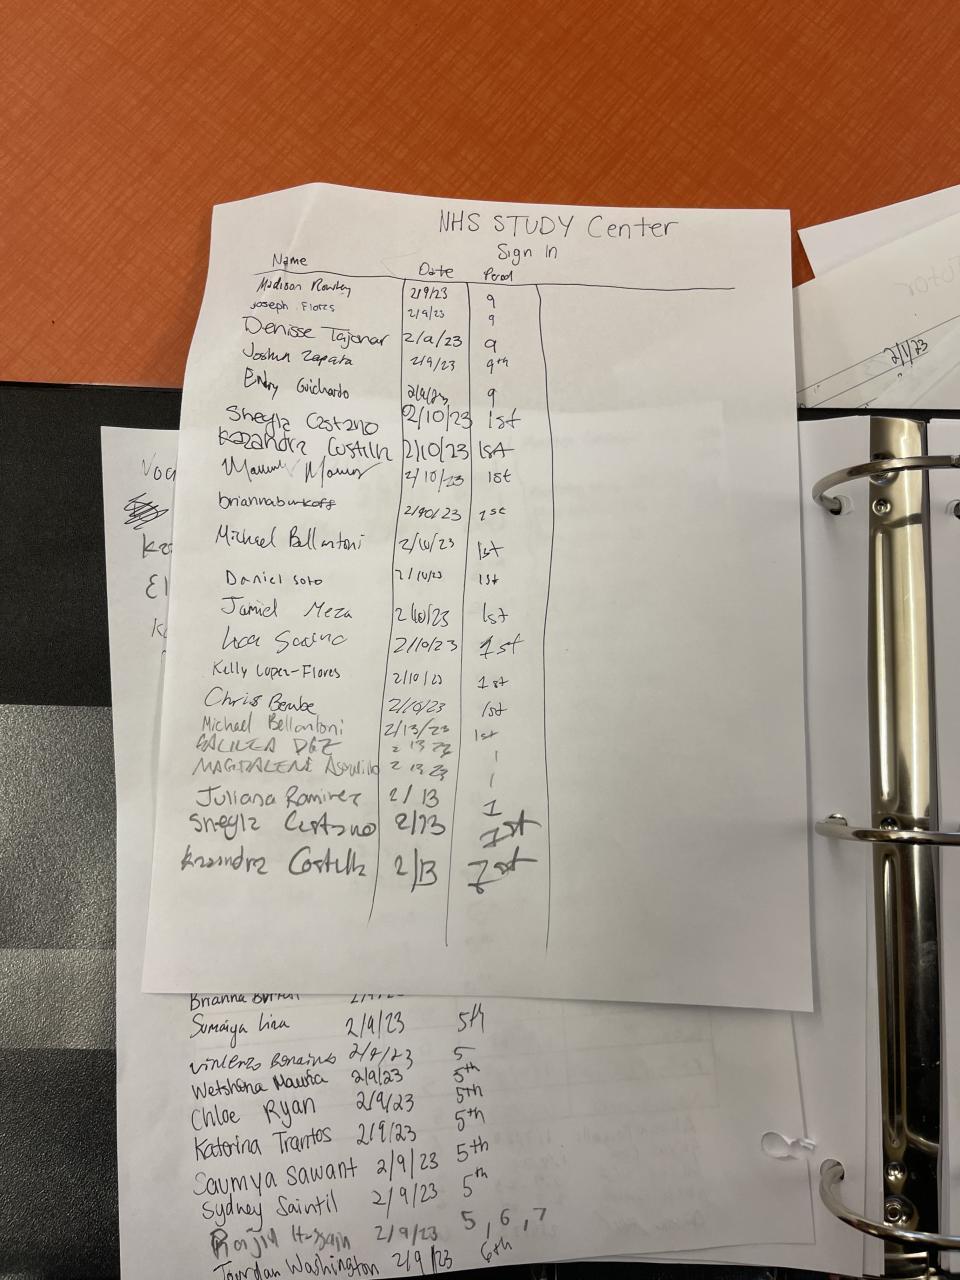 NHS STUDY Center
Sign In
Name Date Period
Madison 2/9/23 9
Joseph Flores 2/9/23 9
Denisse Tajonar 2/9/23 9
Joshua Zapata 2/9/23 9th
Guichardo 2/9/23 9
Sheyla Castano 2/10/23 1st
Kazandra Costilla 2/10/23 1st
2/10/23 1st
briannaburkoff 2/10/23 1st
Michael Bellantoni 2/10/23 1st
Daniel Soto 2/10/23 1st
Jamiel Meza 2/10/23 1st
2/10/23 1st
Kelly Lopez-Flores 2/10/23 1st
Chris 2/10/23 1st
Michael Bellantoni 2/13/23 1st
2 13 23 1
MAGDALENA 2 13 23 1
Juliana Ramirez 2/13 1
Sheyla Castano 2/13 1st
Kazandra Costilla 2/13 1st
2/1/23
Brianna
Sumaiya 2/9/23 5th
2/9/23 5
2/9/23 5th
Chloe Ryan 2/9/23 5th
Katerina Trantos 2/9/23 5th
Saumya Sawant 2/9/23 5th
Sydney Saintil 2/9/23 5th
2/9/23 5, 6, 7
Jourdan Washington 2/9/23 6th